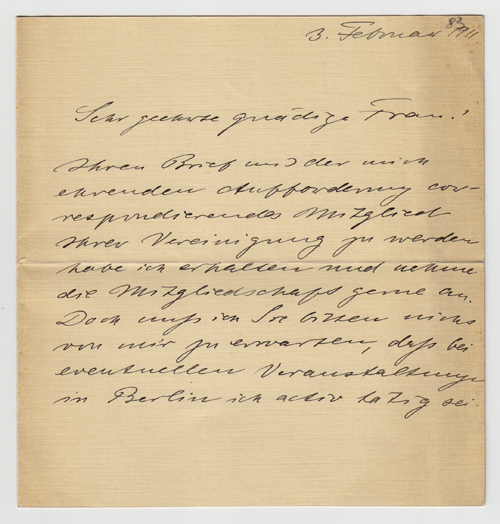 3. Februar 1911
Sehr geehrte gnädige Frau!
Ihren Brief mit der mich
ehrenden Aufforderung cor-
respondierendes Mitglied
Ihrer Vereinigung zu werden
habe ich erhalten und nehme
die Mitgliedschaft gerne an.
Doch muß ich Sie bitten nicht
von mir zu erwarten, daß bei
eventuellen Veranstaltungen
in Berlin ich activ tätig sei.